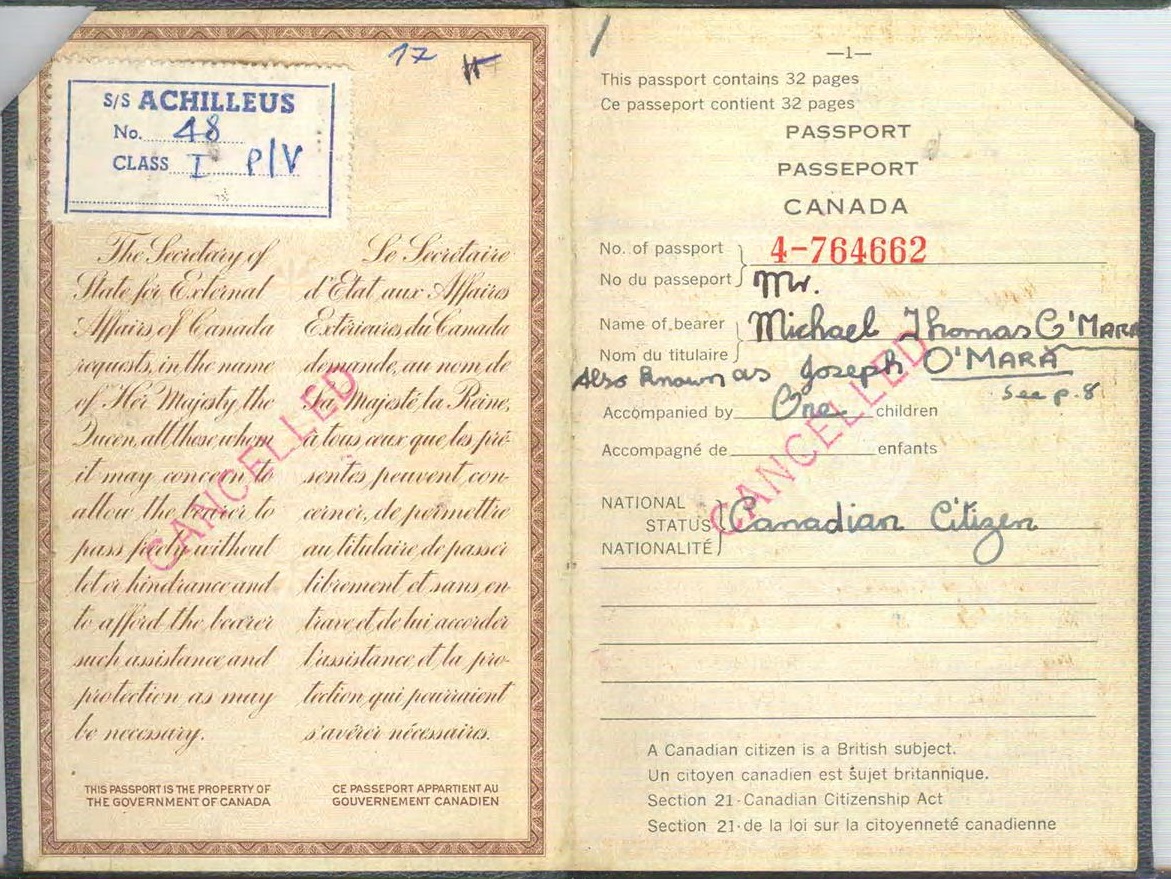 17
S/S ACHILLEUS
No. 48
CLASS I P/V
The Secretary of
State for External
Affairs of Canada
requests, in the name
of Her Majesty the
Queen, all those whom
it may concern to
allow the bearer to
pass freely without
let or hindrance and
to afford the bearer
such assistance and
protection as may
be necessary.
Le Secrétaire
d'Etat aux Affaires
Extérieures du Canada
demande, au nom de
Sa Majesté la Reine,
à tous ceux que les pré-
sentes peuvent con-
cerner, de permettre
au titulaire de passer
librement et sans en
trave et de lui accorder
l'assistance et la pro-
tection qui pourraient
s'avérer nécessaires.
CANCELLED
THIS PASSPORT IS THE PROPERTY OF
THE GOVERNMENT OF CANADA
CE PASSEPORT APPARTIENT AU
GOUVERNEMENT CANADIEN
—1—
This passport contains 32 pages
Ce passeport contient 32 pages
PASSPORT
PASSEPORT
CANADA
No. of passport 4-764662
No du passeport
Mr.
Name of bearer Michael Thomas O'MARA
Nom du titulaire
Also known as Joseph O'MARA
See p. 8
Accompanied by One children
Accompagné de enfants
NATIONAL
STATUS Canadian Citizen
NATIONALITÉ
CANCELLED
A Canadian citizen is a British subject.
Un citoyen canadien est sujet britannique.
Section 21-Canadian Citizenship Act
Section 21-de la loi sur la citoyenneté canadienne